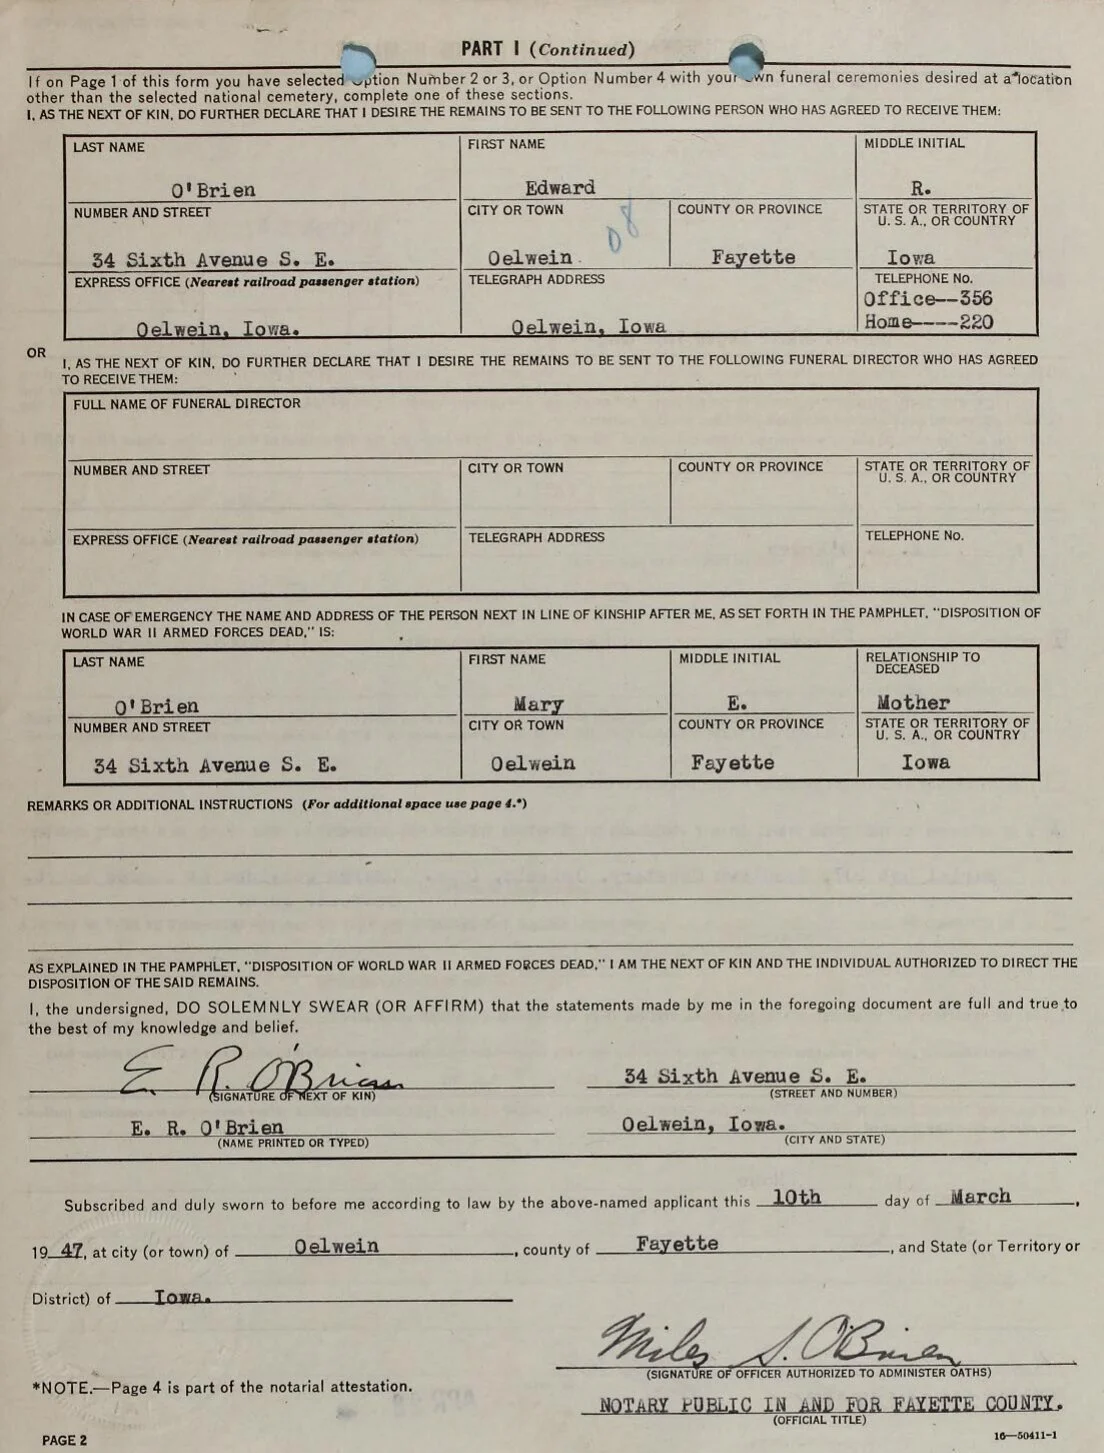 PART I (Continued)
If on Page 1 of this form you have selected Option Number 2 or 3, or Option Number 4 with your own funeral ceremonies desired at a location
other than the selected national cemetery, complete one of these sections.
I, AS THE NEXT OF KIN, DO FURTHER DECLARE THAT I DESIRE THE REMAINS TO BE SENT TO THE FOLLOWING PERSON WHO HAS AGREED TO RECEIVE THEM:
LAST NAME FIRST NAME MIDDLE INITIAL
O'Brien Edward R.
NUMBER AND STREET CITY OR TOWN COUNTY OR PROVINCE STATE OR TERRITORY OF
U. S. A., OR COUNTRY
34 Sixth Avenue S. E. Oelwein Fayette Iowa
EXPRESS OFFICE (Nearest railroad passenger station) TELEGRAPH ADDRESS TELEPHONE No.
Office--356
Oelwein, Iowa. Oelwein, Iowa Home----220
OR I, AS THE NEXT OF KIN, DO FURTHER DECLARE THAT I DESIRE THE REMAINS TO BE SENT TO THE FOLLOWING FUNERAL DIRECTOR WHO HAS AGREED
TO RECEIVE THEM:
FULL NAME OF FUNERAL DIRECTOR
NUMBER AND STREET CITY OR TOWN COUNTY OR PROVINCE STATE OR TERRITORY OF
U. S. A., OR COUNTRY
EXPRESS OFFICE (Nearest railroad passenger station) TELEGRAPH ADDRESS TELEPHONE No.
IN CASE OF EMERGENCY THE NAME AND ADDRESS OF THE PERSON NEXT IN LINE OF KINSHIP AFTER ME, AS SET FORTH IN THE PAMPHLET, "DISPOSITION OF
WORLD WAR II ARMED FORCES DEAD," IS:
LAST NAME FIRST NAME MIDDLE INITIAL RELATIONSHIP TO
DECEASED
O'Brien Mary E. Mother
NUMBER AND STREET CITY OR TOWN COUNTY OR PROVINCE STATE OR TERRITORY OF
U. S. A., OR COUNTRY
34 Sixth Avenue S. E. Oelwein Fayette Iowa
REMARKS OR ADDITIONAL INSTRUCTIONS (For additional space use page 4.*)
AS EXPLAINED IN THE PAMPHLET, "DISPOSITION OF WORLD WAR II ARMED FORCES DEAD," I AM THE NEXT OF KIN AND THE INDIVIDUAL AUTHORIZED TO DIRECT THE
DISPOSITION OF THE SAID REMAINS.
I, the undersigned, DO SOLEMNLY SWEAR (OR AFFIRM) that the statements made by me in the foregoing document are full and true to
the best of my knowledge and belief.
E. R. O'Brien 34 Sixth Avenue S. E.
(SIGNATURE OF NEXT OF KIN) (STREET AND NUMBER)
E. R. O'Brien Oelwein, Iowa.
(NAME PRINTED OR TYPED) (CITY AND STATE)
Subscribed and duly sworn to before me according to law by the above-named applicant this 10th day of March,
19 47, at city (or town) of Oelwein, county of Fayette, and State (or Territory or
District) of Iowa.
Miles S. O'Brien
(SIGNATURE OF OFFICER AUTHORIZED TO ADMINISTER OATHS)
*NOTE.—Page 4 is part of the notarial attestation.
NOTARY PUBLIC IN AND FOR FAYETTE COUNTY.
(OFFICIAL TITLE)
PAGE 2 16—50411-1